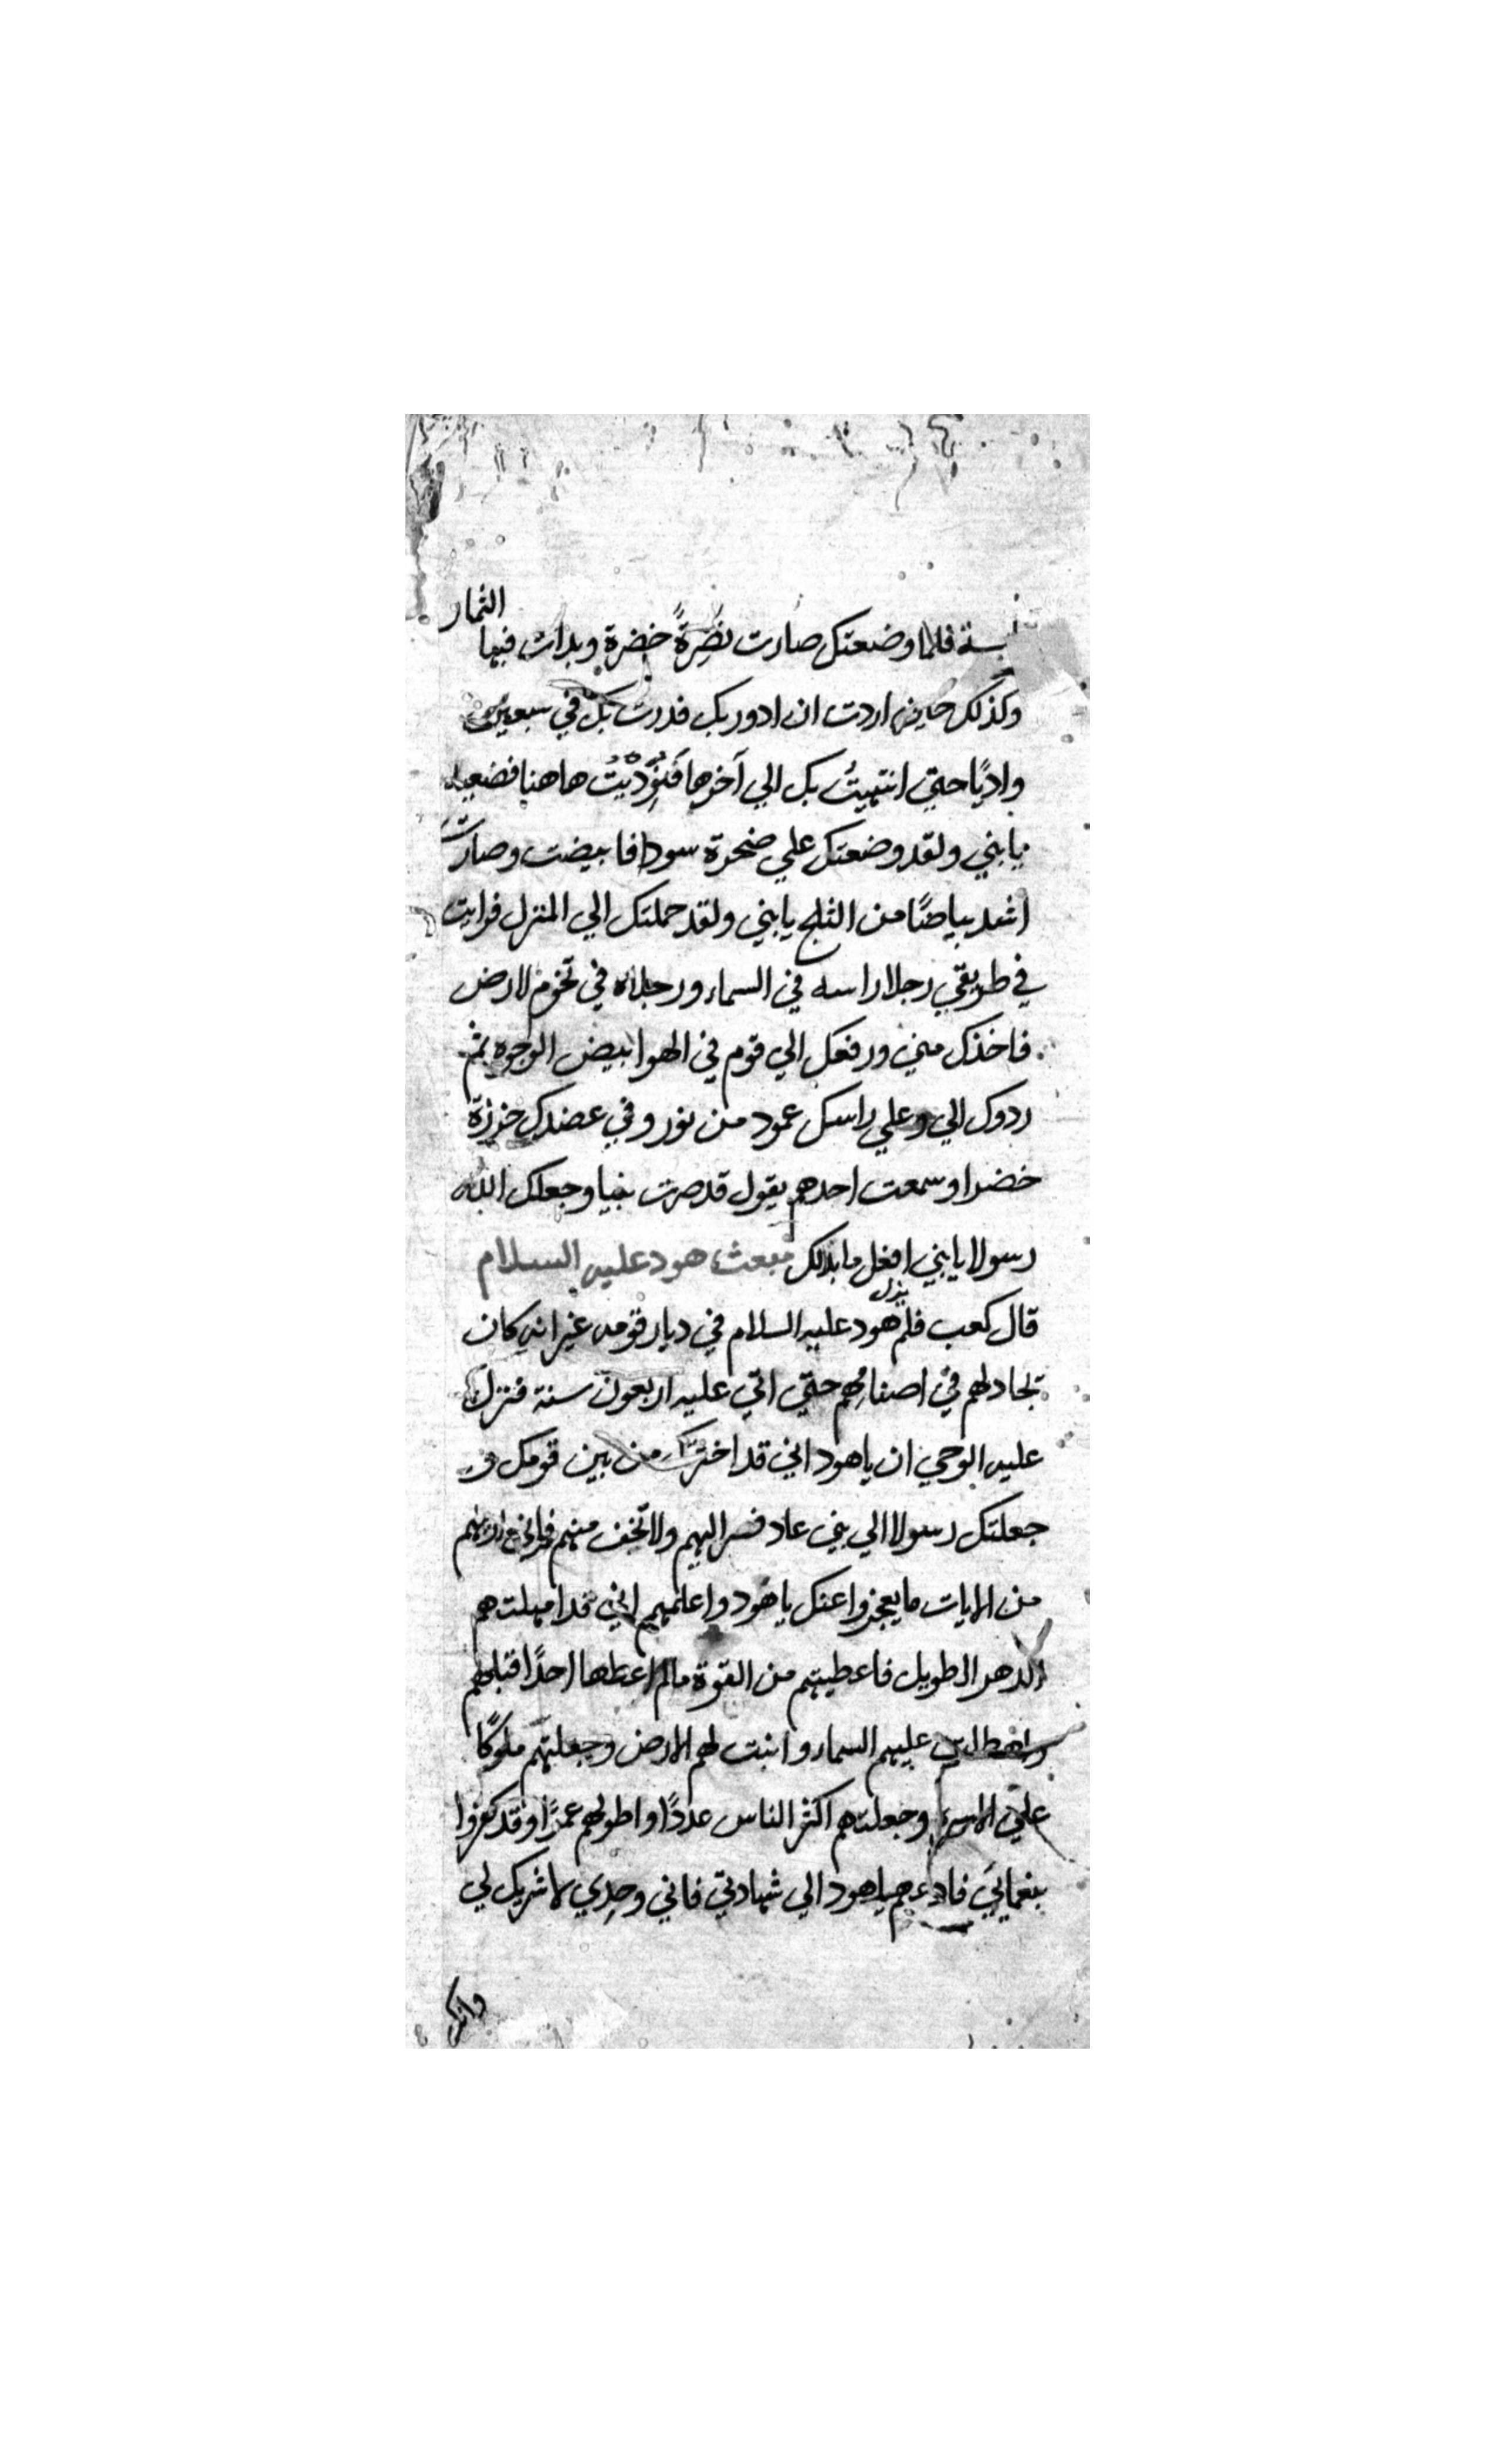 يابسة فلما وضعتك صارت نضرةً خضرة وبدات فيها الثمار
وكذلك حين اردت ان ادور بك فدرت بك في سبعين
واديًا حتي انتهيتُ بك الي آخرها فَنُوْدِيْتُ هاهنا فضعيه
يابني ولقد وضعتك علي صخرة سودا فابيضت وصارت
اشد بياضًا من الثلج يابني ولقد حملتك الي المنزل فرايت
في طريقي رجلا راسه في السماء ورجلاه في تخوم الارض
فاخذك مني ورفعك الي قوم في الهوا بيض الوجوه ثم
ردوك الي وعلي راسك عمود من نور وفي عضدك خرزة
خضرا وسمعت احدهم يقول قد صرت نبيا وجعلك الله
رسولا يابني افعل مابدالك مبعث هود عليه السلام
قال كعب فلم يزل هود عليه السلام في ديار قومه غير انه كان
يجادلهم في اصنامهم حتي اتي عليه اربعون سنة فنزل
عليه الوحي ان ياهود اني قد اخترتك من بين قومك و
جعلتك رسولا الي بني عاد فسر اليهم ولا تخف منهم
من الايات ما يعجزوا عنك ياهود واعلمهم اني قد امهلتهم
الدهر الطويل فاعطيتهم من القوة مالم اعطها احدًا قبلهم
عليهم السماء وانبت لهم الارض وجعلتهم ملوكًا
علي وجعلتهم اكثر الناس عددًا واطولهم عمرًا وقد كفروا
بنعمايي فادعهم ياهود الي شهادتي فاني وحدي لا شريك لي